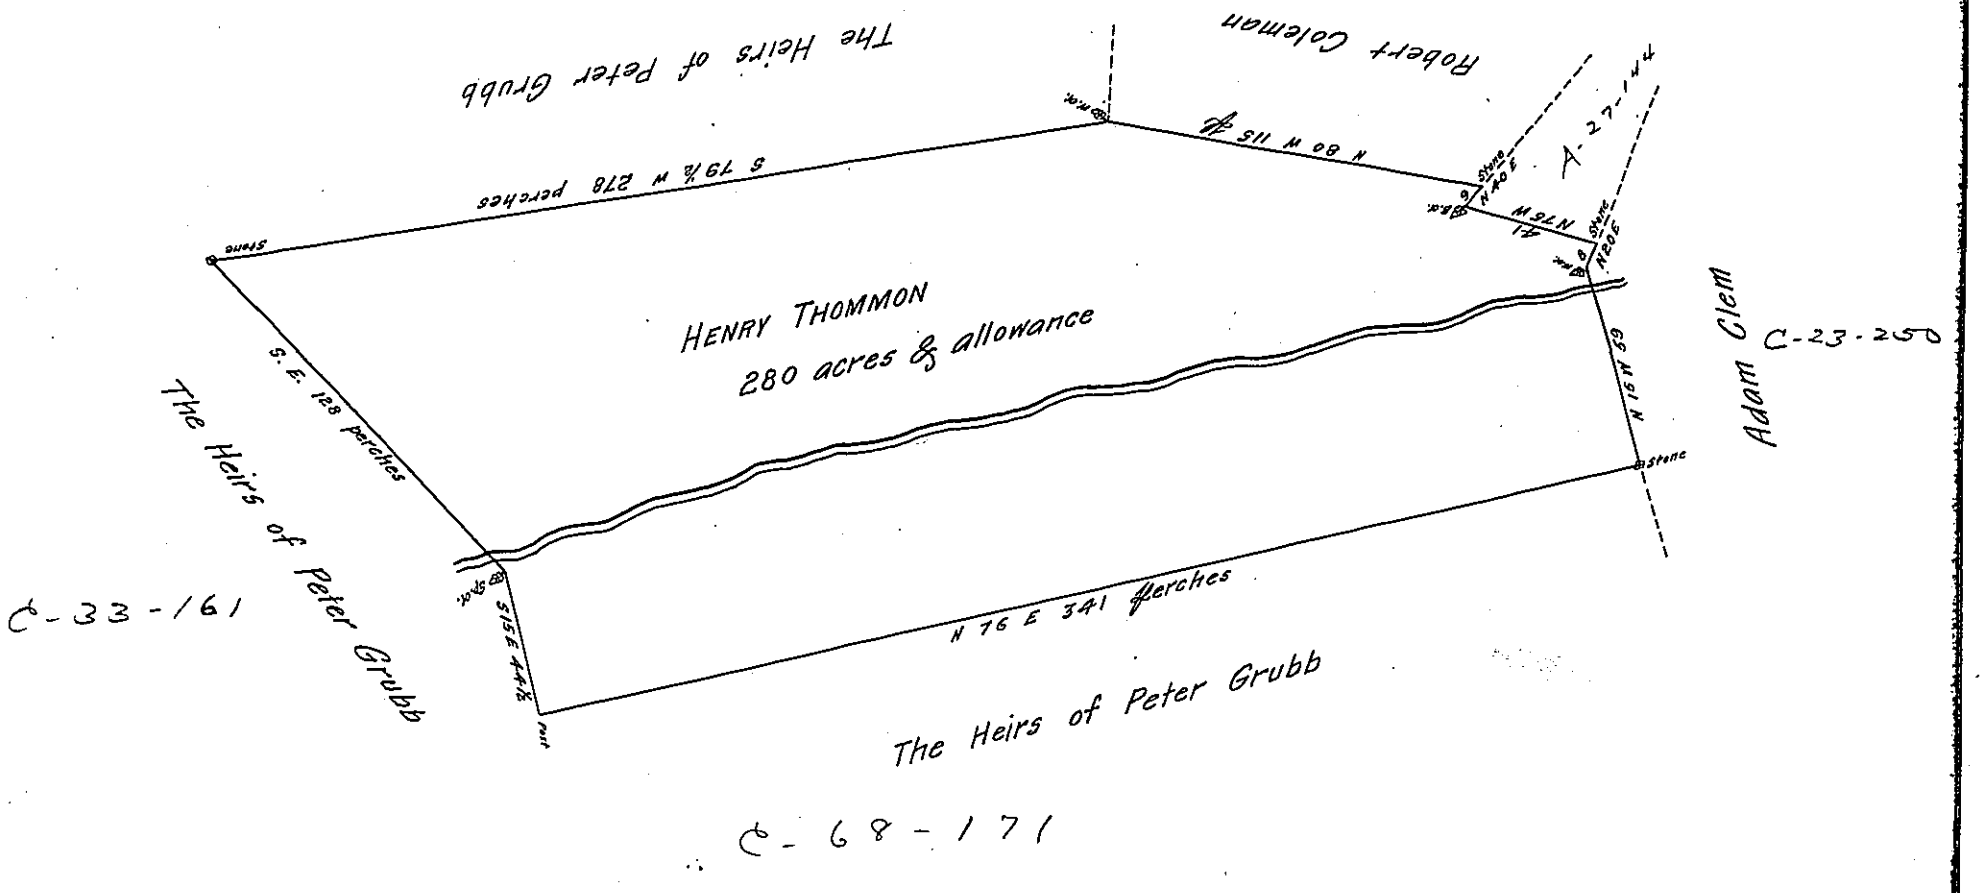 The Heirs of Peter Grubb
Robert Coleman
A-27-144
S 79½ W 278 perches
N 80 W 115 p
Stone
N 40 E
9
B.O.
N 75 W
41
Stone
N 20 E
8
Stone
HENRY THOMMON
280 acres & allowance
Adam Clem
C-23-250
N 15 W 59
Stone
S. E. 128 perches
The Heirs of Peter Grubb
C-33-161
Sp.O.
S 15 E 44½
Post
N 76 E 341 perches
The Heirs of Peter Grubb
C-68-171